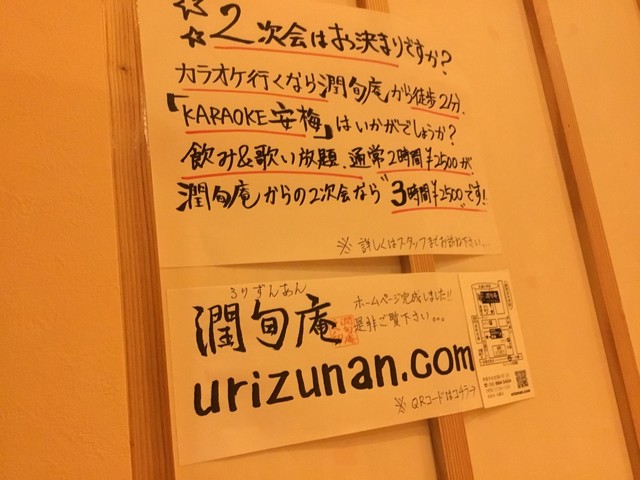 ☆☆2次会はお決まりですか?
カラオケ行くなら潤旬庵から徒歩2分、
「KARAOKE安梅」はいかがでしょうか?
飲み&歌い放題、通常2時間¥2500が、
潤旬庵からの2次会なら"3時間¥2500"です!
※詳しくはスタッフまでお訪ね下さい...
うりずんあん
潤旬庵
ホームページ完成しました!!
是非ご覧下さい。。。
urizunan.com
※QRコードはコチラ→